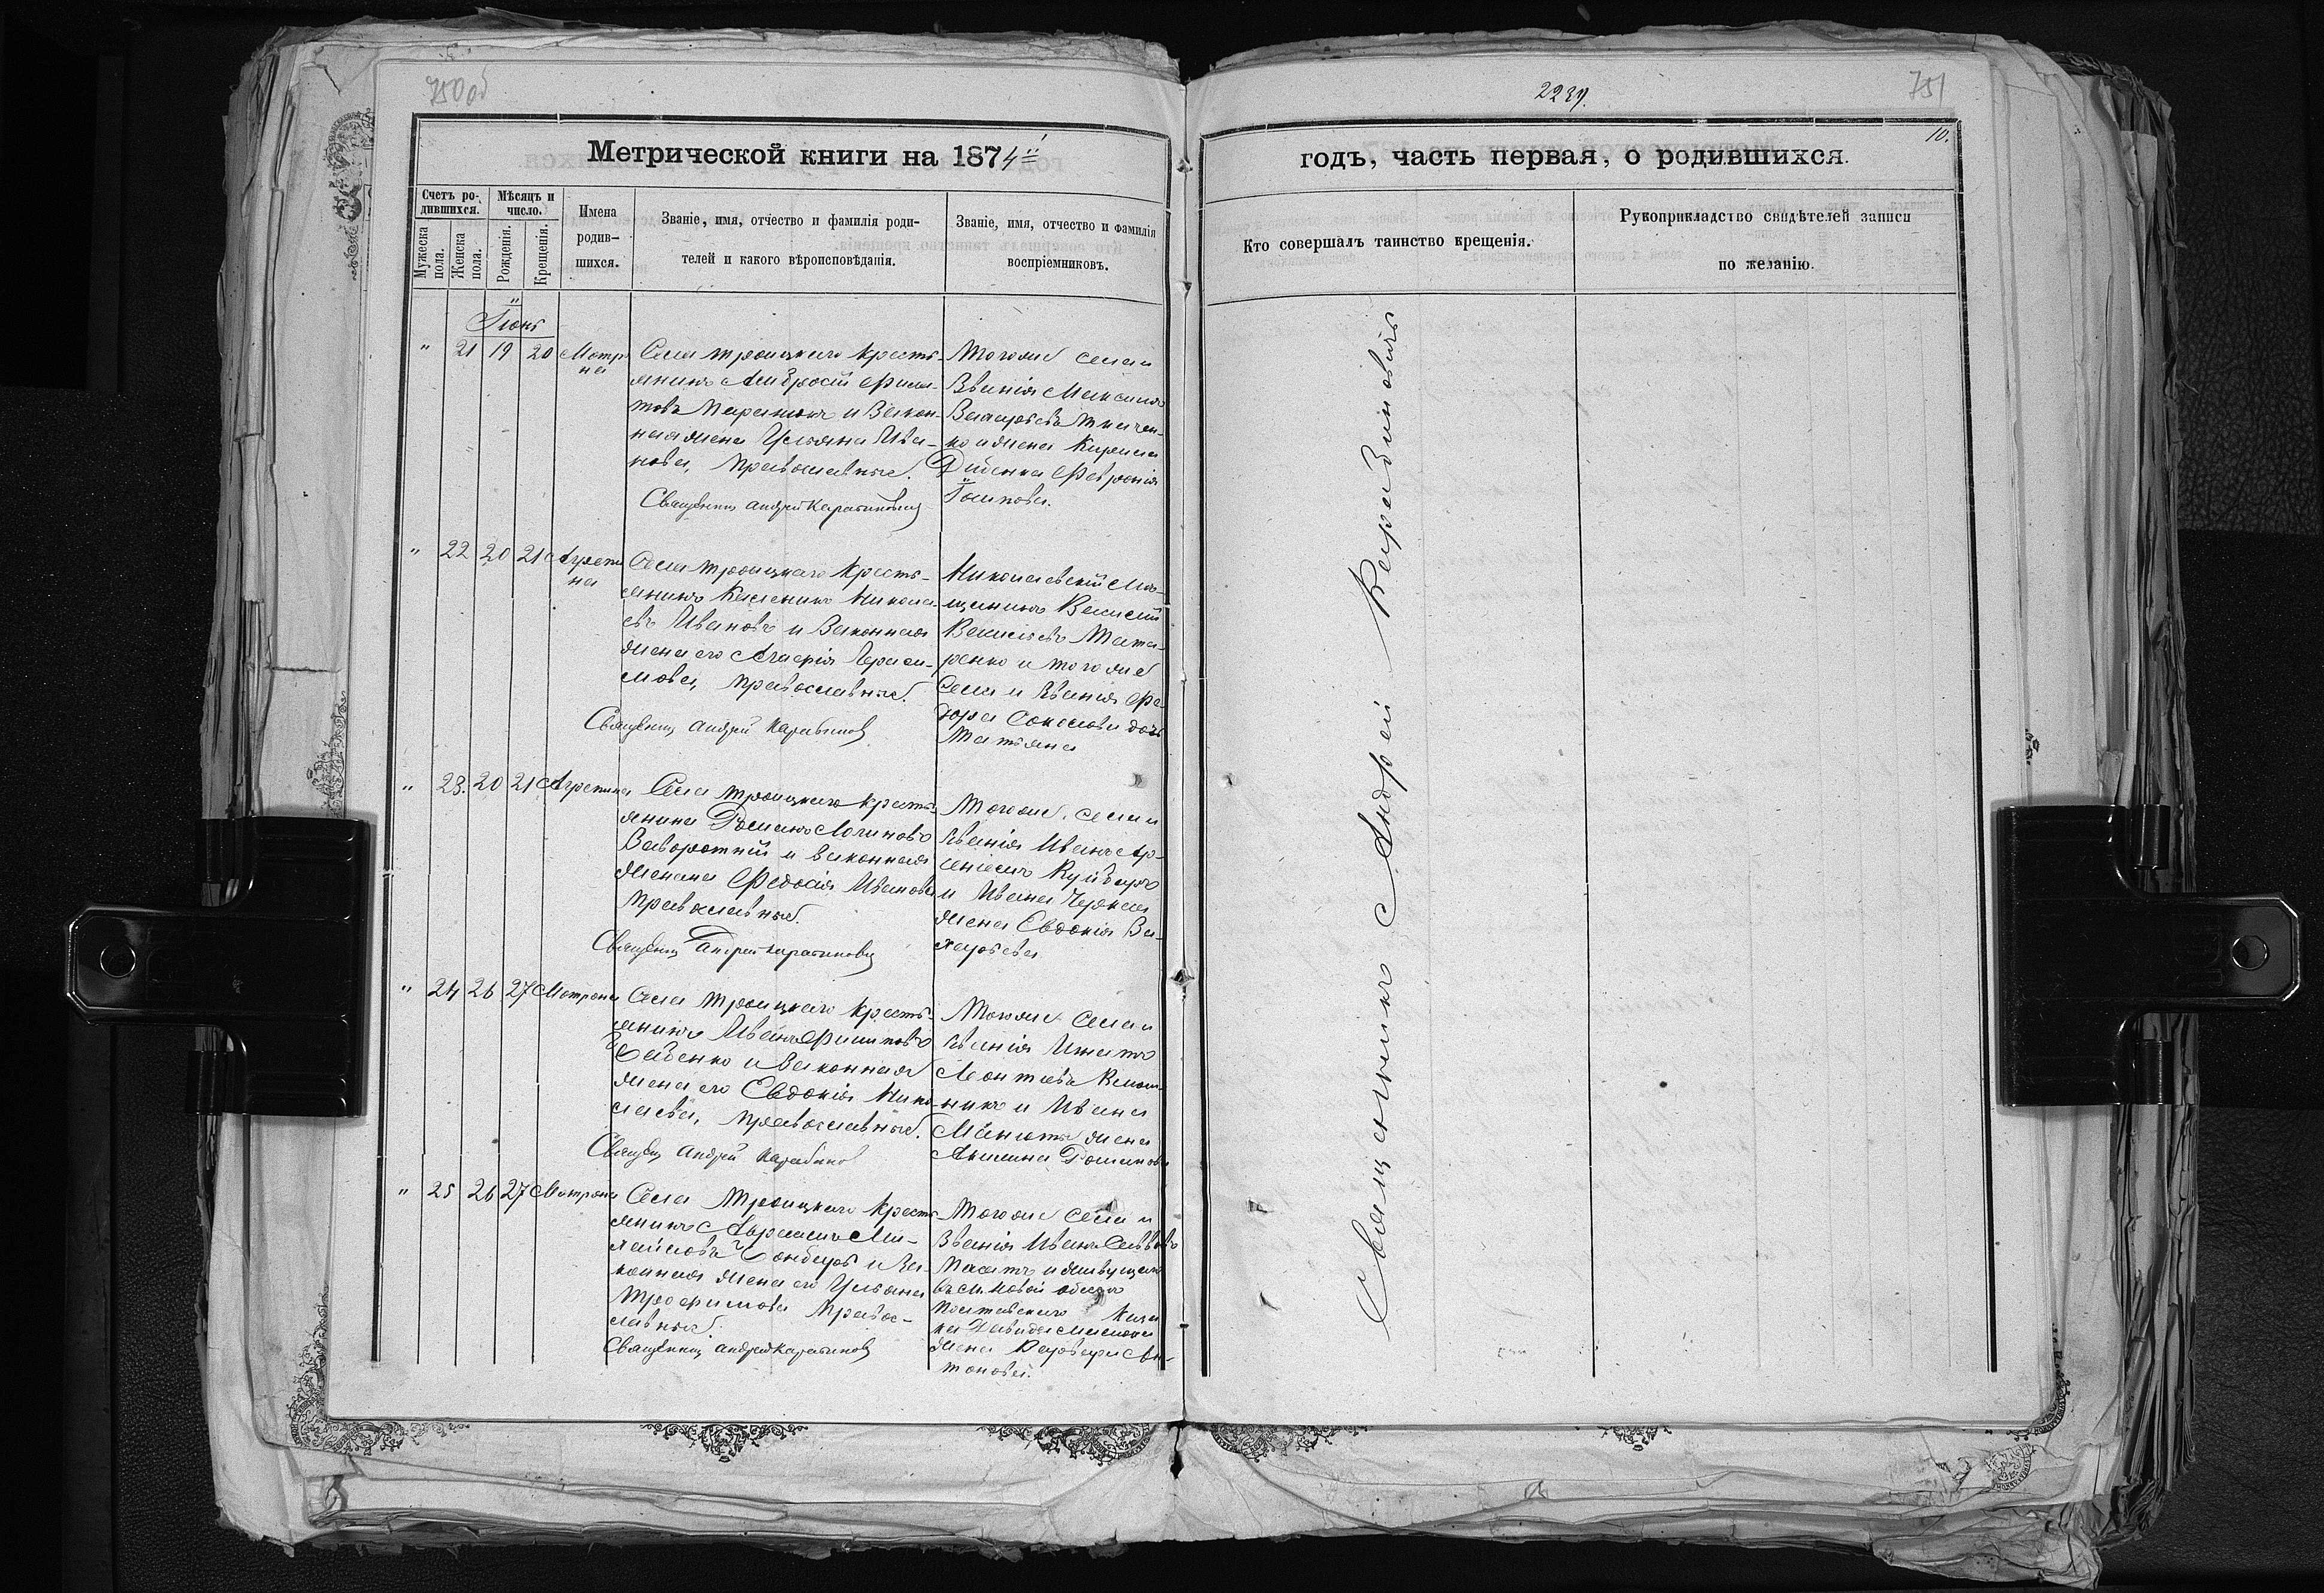 750об
Метрической книги на 1874й
Счетъ ро-
дившихся.
Мужеска пола.
Женска пола.
Мѣсяцъ и
число.
Рожденія.
Крещенія.
Имена
родив-
шихся.
Званіе, имя, отчество и фамилія роди-
телей и какого вѣроисповѣданія.
Званіе, имя, отчество и фамилія
воспріемниковъ.
Іюнь
" 21 19 20 Мотро
на
Села Троицкаго кресть-
янинъ Амвросій Филип-
товъ и Закон-
ная жена Ульяна Ива-
нова, православные.
Священникъ Андрей Карабиновичъ
Тогоже села и
Званія Максимъ
Захарьевъ Ткачен-
ко и жена Кирила
Диденка Феврония
Іосипова.
" 22 20 21 Агрепи
на
Села Троицкаго кресть-
янинъ Никола-
евъ Ивановъ и Законная
жена его Гераси-
мова, православные.
Священникъ Андрей Карабинов
Николаевскій мѣ-
щанинъ Василій
Васильевъ Тата-
ренко и тогоже
Села и Званія Фе-
дора Соколова дочь
Татьяна
" 23. 20 21 Агрепина
Села Троицкаго кресть-
янинъ Романъ Логиновъ
Заворотній и законная
жена Федосія Иванова
православные.
Священникъ Андрей Карабиновичъ
Тогоже села и
Званія Иванъ Ар-
и Ивана
жена Евдокія За-
харьева
" 24 26 27 Мотрона
Села Троицкаго кресть-
янинъ Иванъ Филиповъ
и Законная
жена его Евдокія Нико-
лаева, православные.
Священ Андрей Карабинов
Тогоже Села и
Званія Игнатъ
Леонтьевъ
и Ивана
жена
Акилина Романова
" 25 26 27 Мотрона
Села Троицкаго кресть-
янинъ Авраамъ Ми-
хайловъ Бондарь и За-
конная жена его Ульяна
Трофимова Правос-
лавные.
Священникъ Андрей Карабинов
Тогоже Села и
Званія Иванъ Савѣевъ
и живущаго
Полтавского Каза
ка Давида
жена Варвара Ан-
тонова.
2239.
751
10.
годъ, часть первая, о родившихся.
Кто совершалъ таинство крещенія.
Рукоприкладство свидѣтелей записи
по желанію.
Священникъ Андрей Карабиновичъ